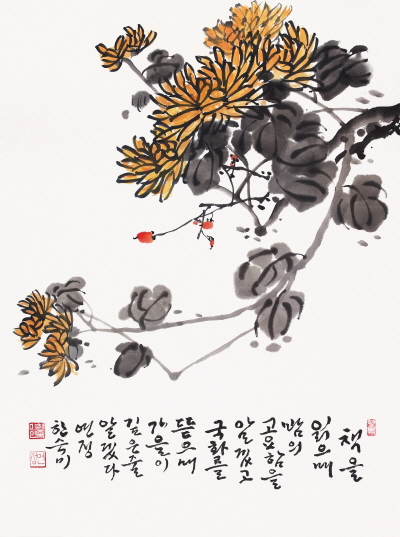 책을
읽으매
밤의
고요함을
알겠고
국화를
뜯으매
가을이
깊은줄
알겠다
연정
한숙미